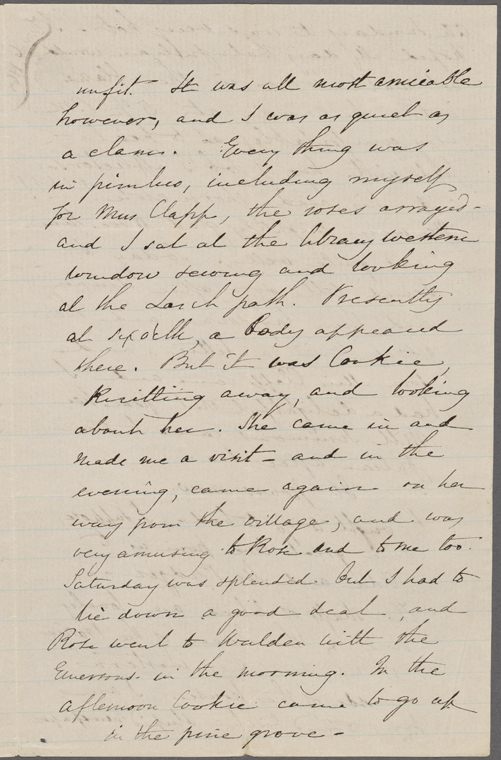 unfit. It was all most amicable
however, and I was as quiet as
a clam. Every thing was
in pimlico, including myself
for Miss Clapp, the roses arrayed -
and I sat at the library western
window sewing and looking
at the Larch path. Presently
at six o'clk, a body appeared
there. But it was Cookie,
Knitting away, and looking
about her. She came in and
made me a visit - and in the
evening, came again on her
way from the village, and was
very amusing to Rose and to me too.
Saturday was splendid but I had to
lie down a good deal, and
Rose went to Walden with the
Emersons in the morning. In the
afternoon Cookie came to go up
in the pine grove -